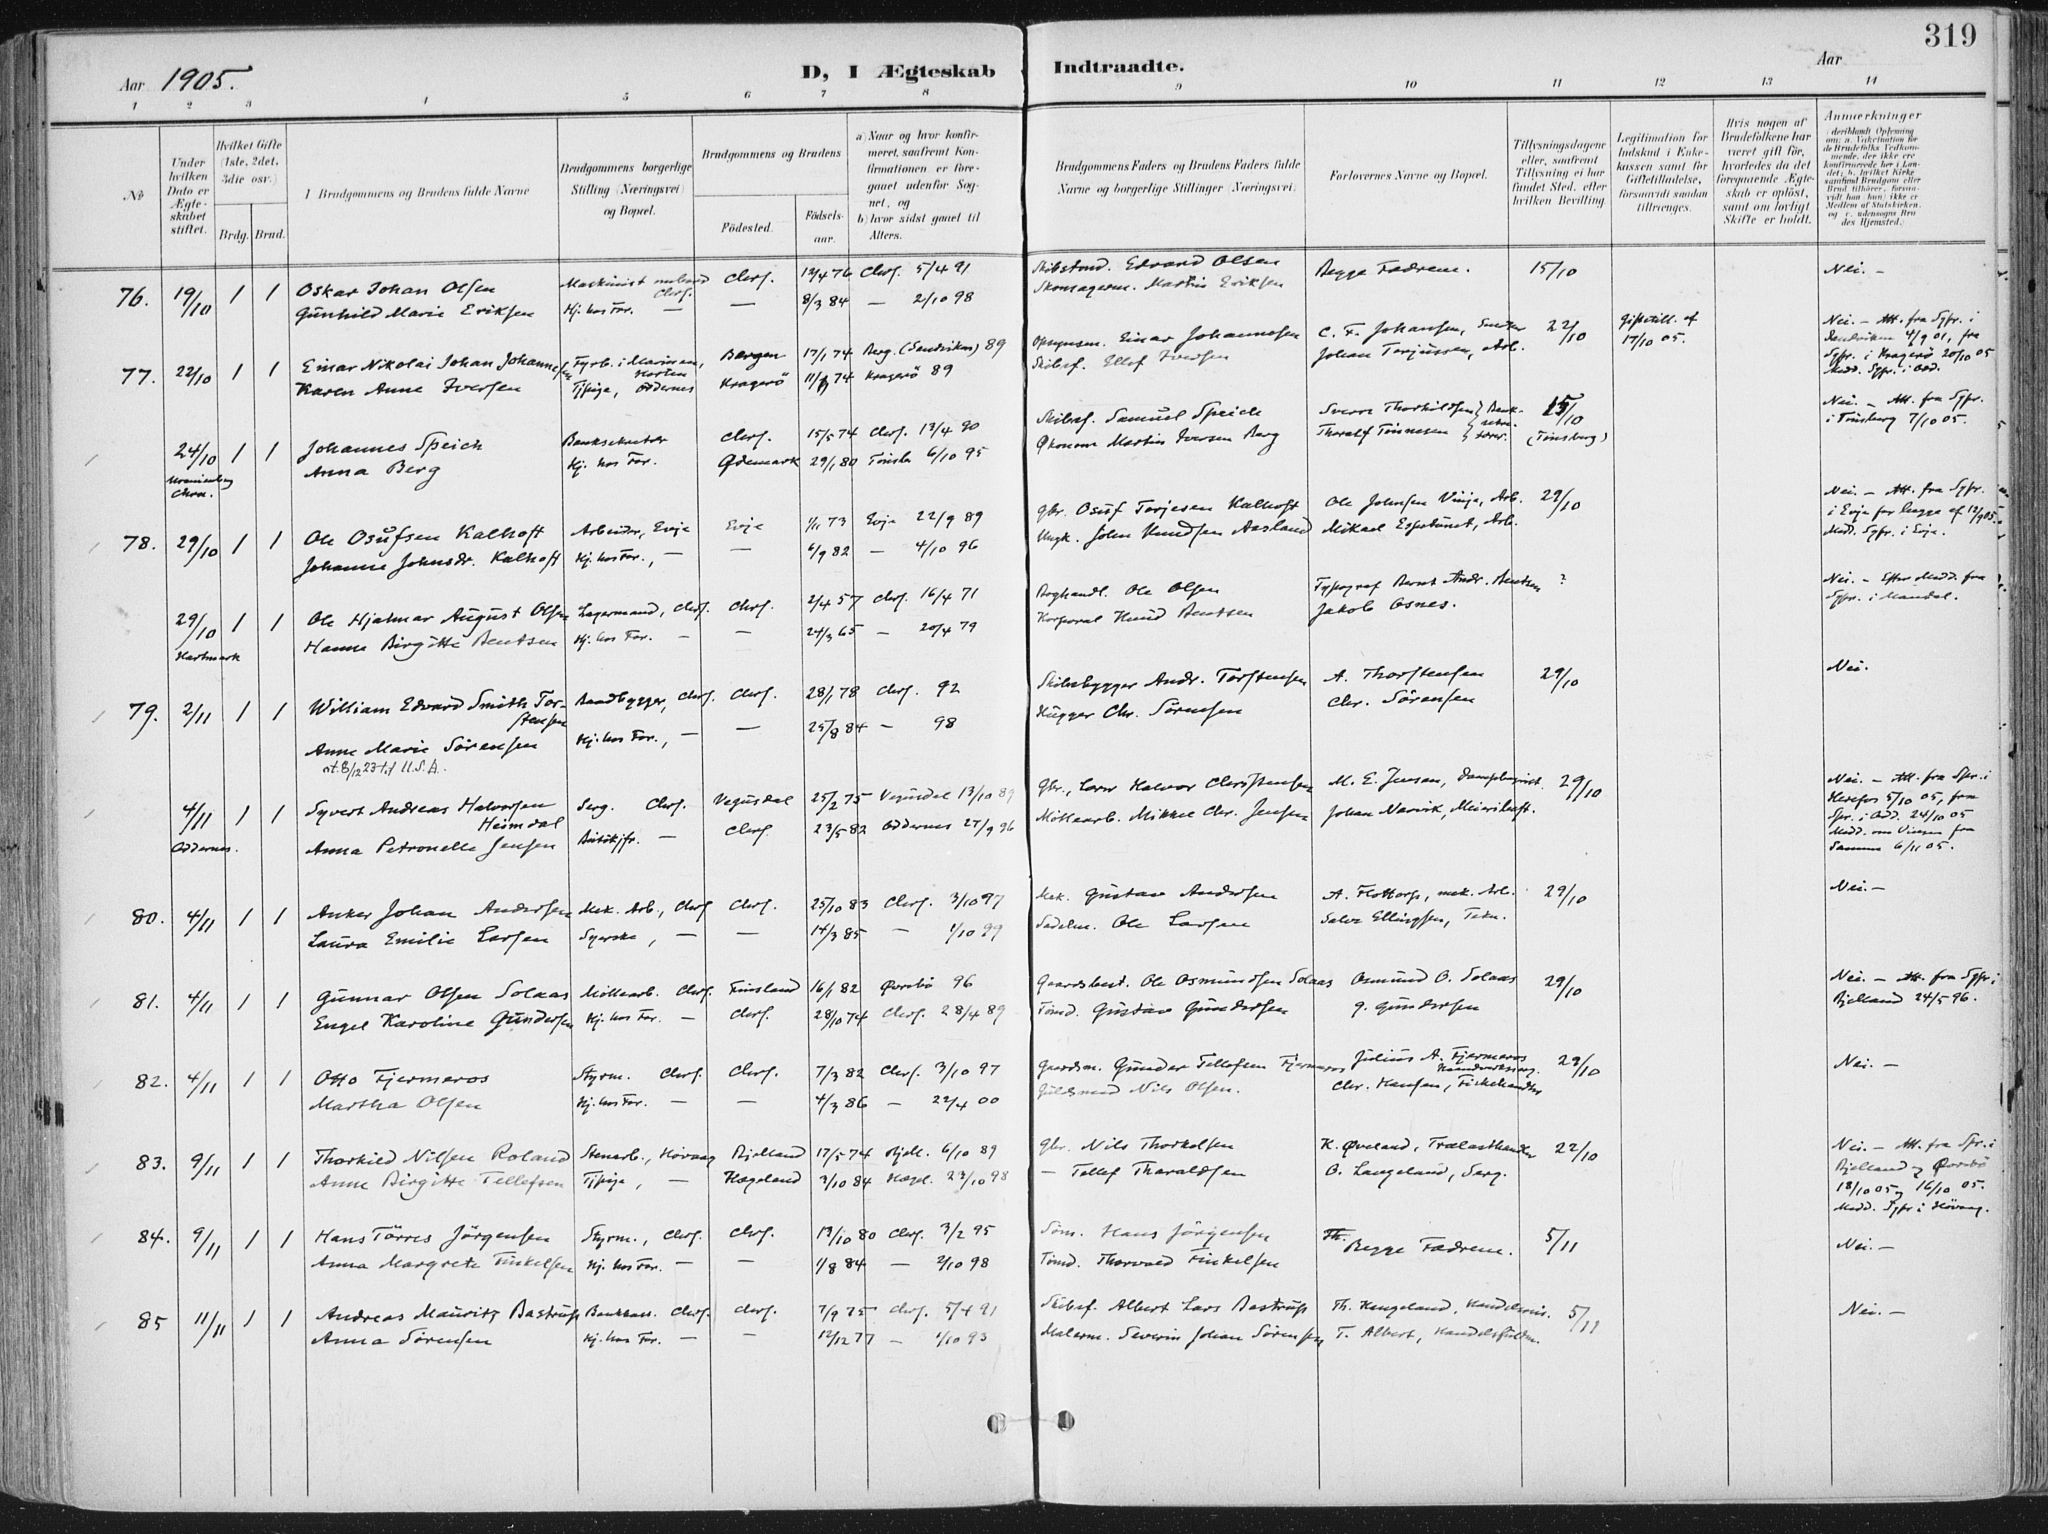 319
Aar 1905.
D, I Ægteskab Indtraadte.
Aar
1 2 3 4 5 6 7 8 9 10 11 12 13 14
No
Under hvilken Dato er Ægteskabet stiftet.
Hvilket Gifte (1ste, 2det, 3die osv.)
Brdg. Brud.
I Brudgommens og Brudens fulde Navne
Brudgommens borgerlige Stilling (Næringsvei) og Bopæl.
Brudgommens og Brudens
Fødested. Fødselsaar.
a) Naar og hvor konfirmeret, saafremt Konfirmationen er foregaaet udenfor Sognet, og
b) hvor sidst gaaet til Alters.
Brudgommens Faders og Brudens Faders fulde Navne og borgerlige Stillinger (Næringsvei).
Forlovernes Navne og Bopæl.
Tillysningsdagene eller, saafremt Tillysning ei har fundet Sted, efter hvilken Bevilling.
Legitimation for Indskud i Enkekassen samt for Giftetilladelse, forsaavidt saadan tiltrænges.
Hvis nogen af Brudefolkene har været gift før, hvorledes da det foregaaende Ægteskab er opløst, samt om lovligt Skifte er holdt.
Anmærkninger
76. 19/10 1 1 Oskar Johan Olsen Maskinist Chrs. Chrs. 12/4 76 Chrs. 5/4 91 Edvard Olsen Begge Fædrene. 15/10 Nei. –
Gunhild Marie Eriksen Hj. hos Far. — — 8/3 84 — 2/10 98 Martin Eriksen
77. 22/10 1 1 Einar Nikolai Johan Johannesen Fyrb. i Marinen, Horten Bergen 17/1 74 Berg. (Sandviken) 89 Opsynsm. Einar Johannesen C. F. Johansen, 22/10 Giftetill. af 17/10 05. Nei. – Att. fra Sgpr. i Sandviken 4/9 01, fra Sgpr. i Kragerö 20/10 05 Medd. Sgpr. i Odd.
Karen Anne Iversen Tjpige, Oddernes Kragerö 74 Kragerö 89 Skibsf. Ellef Iversen Johan Terjussen, Arb.
24/10 1 1 Johannes Speich Banksekretær Chrs. 15/5 74 Chrs. 13/4 90 Skibsf. Samuel Speich Sverre Thorkildsen 15/10 (Tönsberg) Nei – Att. fra Sgpr. i Tönsberg 7/10 05.
Uranienborg Chra. Anna Berg Hj. hos Far. Ødemark 29/1 80 Tönsb. 6/10 95 Økonom Martin Iversen Berg Thoralf Tönnesen
78. 29/10 1 1 Ole Osufsen Kalhoft Arbeider, Evje Evje 1/11 73 Evje 22/9 89 Gbr. Osuf Terjesen Kalhoft Ole Johnsen Vinje, Arb. 29/10 Nei. – Att. fra Sgpr. i Evje for begge af 13/9 05. Medd. Sgpr. i Evje.
Johanne Johnsdr. Kalhoft Hj. hos Far., — — 6/9 82 — 4/10 96 John Knudsen Aasland Mikael Espetunet, Arb.
29/10 1 1 Ole Hjalmar August Olsen Lagermand, Chrs. Chrs. 2/4 57 Chrs. 16/4 71 Boghandl. Ole Olsen Typograf Bernt Andr. Bentsen ? Nei – Efter Medd. fra Sgpr. i Mandal.
Hartmark Hanne Birgitte Bentsen Hj. hos Far. — — 24/3 65 — 20/4 79 Korporal Knud Bentsen Jakob Osnes.
79. 2/11 1 1 William Edvard Smith Torstensen Baadbygger, Chrs. Chrs. 28/1 78 Chrs. 92 Skibsbygger Andr. Torstensen A. Thorstensen 29/10 Nei.
Anne Marie Sörensen Hj. hos Far., — — 25/8 84 — 98 Hugger Chr. Sörensen Chr. Sörensen
ut. 8/12 23 til U.S.A.
4/11 1 1 Syvert Andreas Halvorsen Heimdal Serg. Chrs. Vegusdal 25/2 75 Vegusdal 13/10 89 Gbr., Halvor Christensen M. E. Jensen, 29/10 Nei. – Att. fra Spr. i Herefos 5/10 05, fra Spr. i Odd. 24/10 05 Medd. om Vigsen fra Samme 6/11 05.
Oddernes. Anna Petronelle Jensen Butikjfr. — Chrs. 23/5 82 Oddernes 27/9 96 Möllearb. Mikkel Chr. Jensen Johan Narvik, Meieribest.
80. 4/11 1 1 Anker Johan Andersen Mek. Arb., Chrs. Chrs. 25/10 83 Chrs. 3/10 97 Mek. Gustav Andersen A. Flottorp, mek. Arb. 29/10 Nei. –
Laura Emilie Larsen Syerske, — — 14/3 85 — 1/10 99 Sadelm. Ole Larsen Salve Ellingsen, Tekn.
81. 4/11 1 1 Gunnar Olsen Solaas Möllearb. Chrs. Finsland 16/1 82 Øvrebö 96 Gaardsbest. Ole Osmundsen Solaas Osmund O. Solaas 29/10 Nei. – Att. fra Sgpr. i Bjelland 24/5 96.
Engel Karoline Gundersen Hj. hos Far. — Chrs. 28/10 74 Chrs. 28/4 89 Tömd. Gustav Gundersen G. Gundersen
82. 4/11 1 1 Otto Fjermeros Styrm. Chrs. Chrs. 7/3 82 Chrs. 3/10 97 Gaardsm. Gunder Tellefsen Fjermeros Julius A. Fjermeros 29/10 Nei. –
Martha Olsen Hj. hos Far. — — 4/3 86 — 22/4 00 Guldsmed Nils Olsen. Chr. Hansen, Fiskehandler
83. 9/11 1 1 Thorkild Nilsen Roland Stenarb., Hövaag Bjelland 17/5 74 Bjell. 6/10 89 Gbr. Nils Thorkelsen K. Øveland, Trælasthandler 22/10 Nei. – Att. fra Spr. i Bjelland og Øvrebö 18/10 05 og 16/10 05. Medd. Sgpr. i Hövaag.
Anne Birgitte Tellefsen Tjpige, — Hægeland 3/10 84 Hægel. 23/10 98 — Tellef Tharaldsen O. Langeland, Serg.
84. 9/11 1 1 Hans Törres Jörgensen Styrm., Chrs. Chrs. 13/10 80 Chrs. 3/2 95 Söm. Hans Jörgensen Th. Begge Fædrene. 5/11 Nei. –
Anna Margrete Finkelsen Hj. hos Far. — — 1/8 84 — 2/10 98 Tömd. Thorvald Finkelsen
85 11/11 1 1 Andreas Mauritz Bastrup Bankkas. Chrs. Chrs. 7/9 75 Chrs. 5/4 91 Skibsf. Albert Lars Bastrup Th. Hengeland, Handelsreis. 5/11 Nei. –
Anna Sörensen Hj. hos Far. — — 12/12 77 — 1/10 93 Malerm. Severin Johan Sörensen T. Albert, Handelsfuldm.